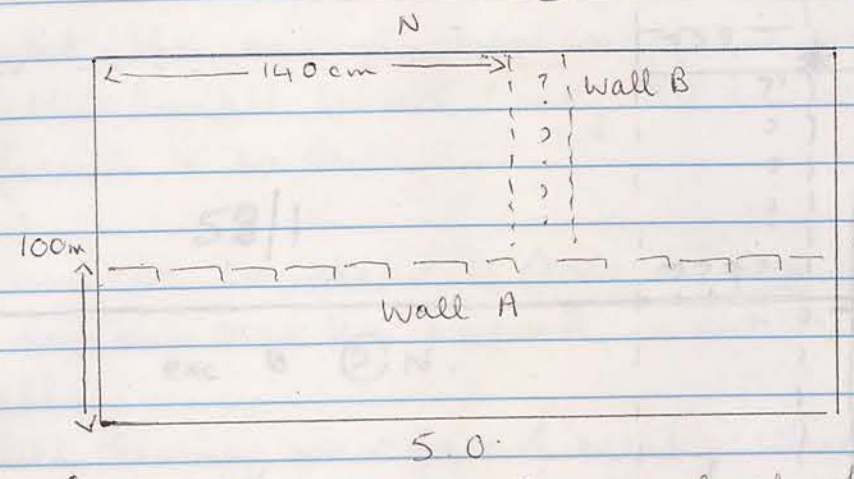 N
140 cm
? Wall B
?
?
100m
Wall A
5.0.